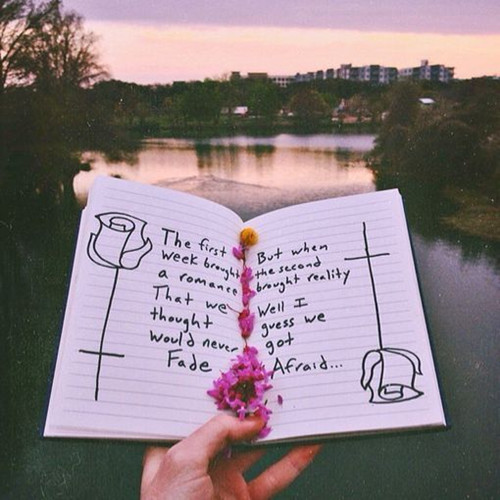 The first
week brought
a romance
That we
thought
would never
Fade
But when
the second
brought reality
Well I
guess we
got
Afraid...